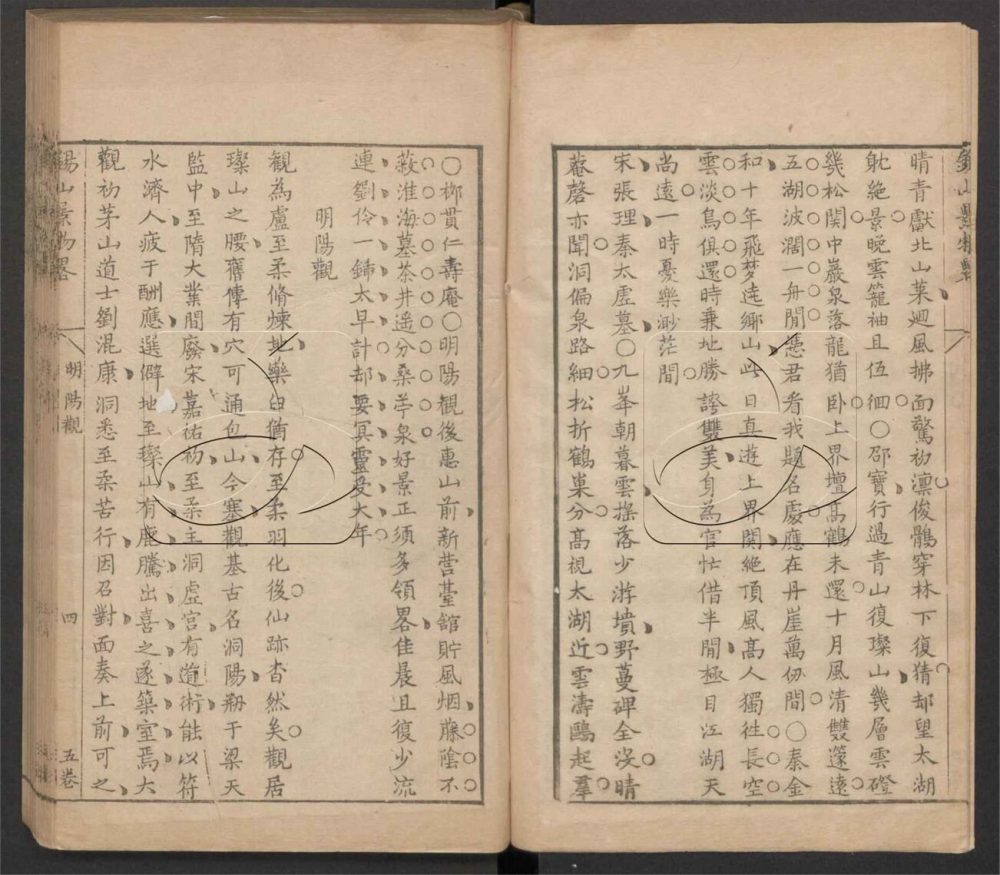 晴青獻北山菓廻風拂面驚初凛俊鶻穿林下復猜却望太湖
眈絶景晚雲籠袖且伍徊〇邵寶行過青山復璨山幾層雲磴
幾松関中巖泉落龍猶卧上界壇髙鶴未還十月風清雙篷遠
五湖波濶一舟閒憑君看我題名處應在丹崖萬仞間〇秦金
和十年飛梦遶鄉山此日真遊上界関絶頂風髙人獨往長空
雲淡鳥俱還時秉地勝誇雙美身為官忙借半閒極目江湖天
尚遠一時憂樂渺茫間
宋張理秦太虚墓〇九峯朝暮雲揺落少游墳野蔓碑全没晴
菴磬亦聞洞偏泉路細松折鶴巢分髙視太湖近雲濤鷗起羣
〇栁貫仁壽庵〇明陽觀後惠山前新营臺舘貯風烟藤陰不
蔽淮海墓茶井遥分桑苧泉好景正須多領畧佳晨且復少流
連劉伶一鍤太早計却要冥靈受大年
明陽觀
觀為盧至柔脩煉地藥臼猶存至柔羽化後仙跡杳然矣觀居
璨山之腰舊傳有穴可通包山今塞觀基古名洞陽剏于梁天
監中至隋大業間廢宋嘉祐初至柔主洞虚宫有道術能以符
水濟人疲于酬應選僻地至璨山有鹿騰出喜之遂築室焉大
觀初茅山道士劉混康洞悉至柔苦行因召對面奏上前可之
錫山景物畧
明陽觀
四
五巻